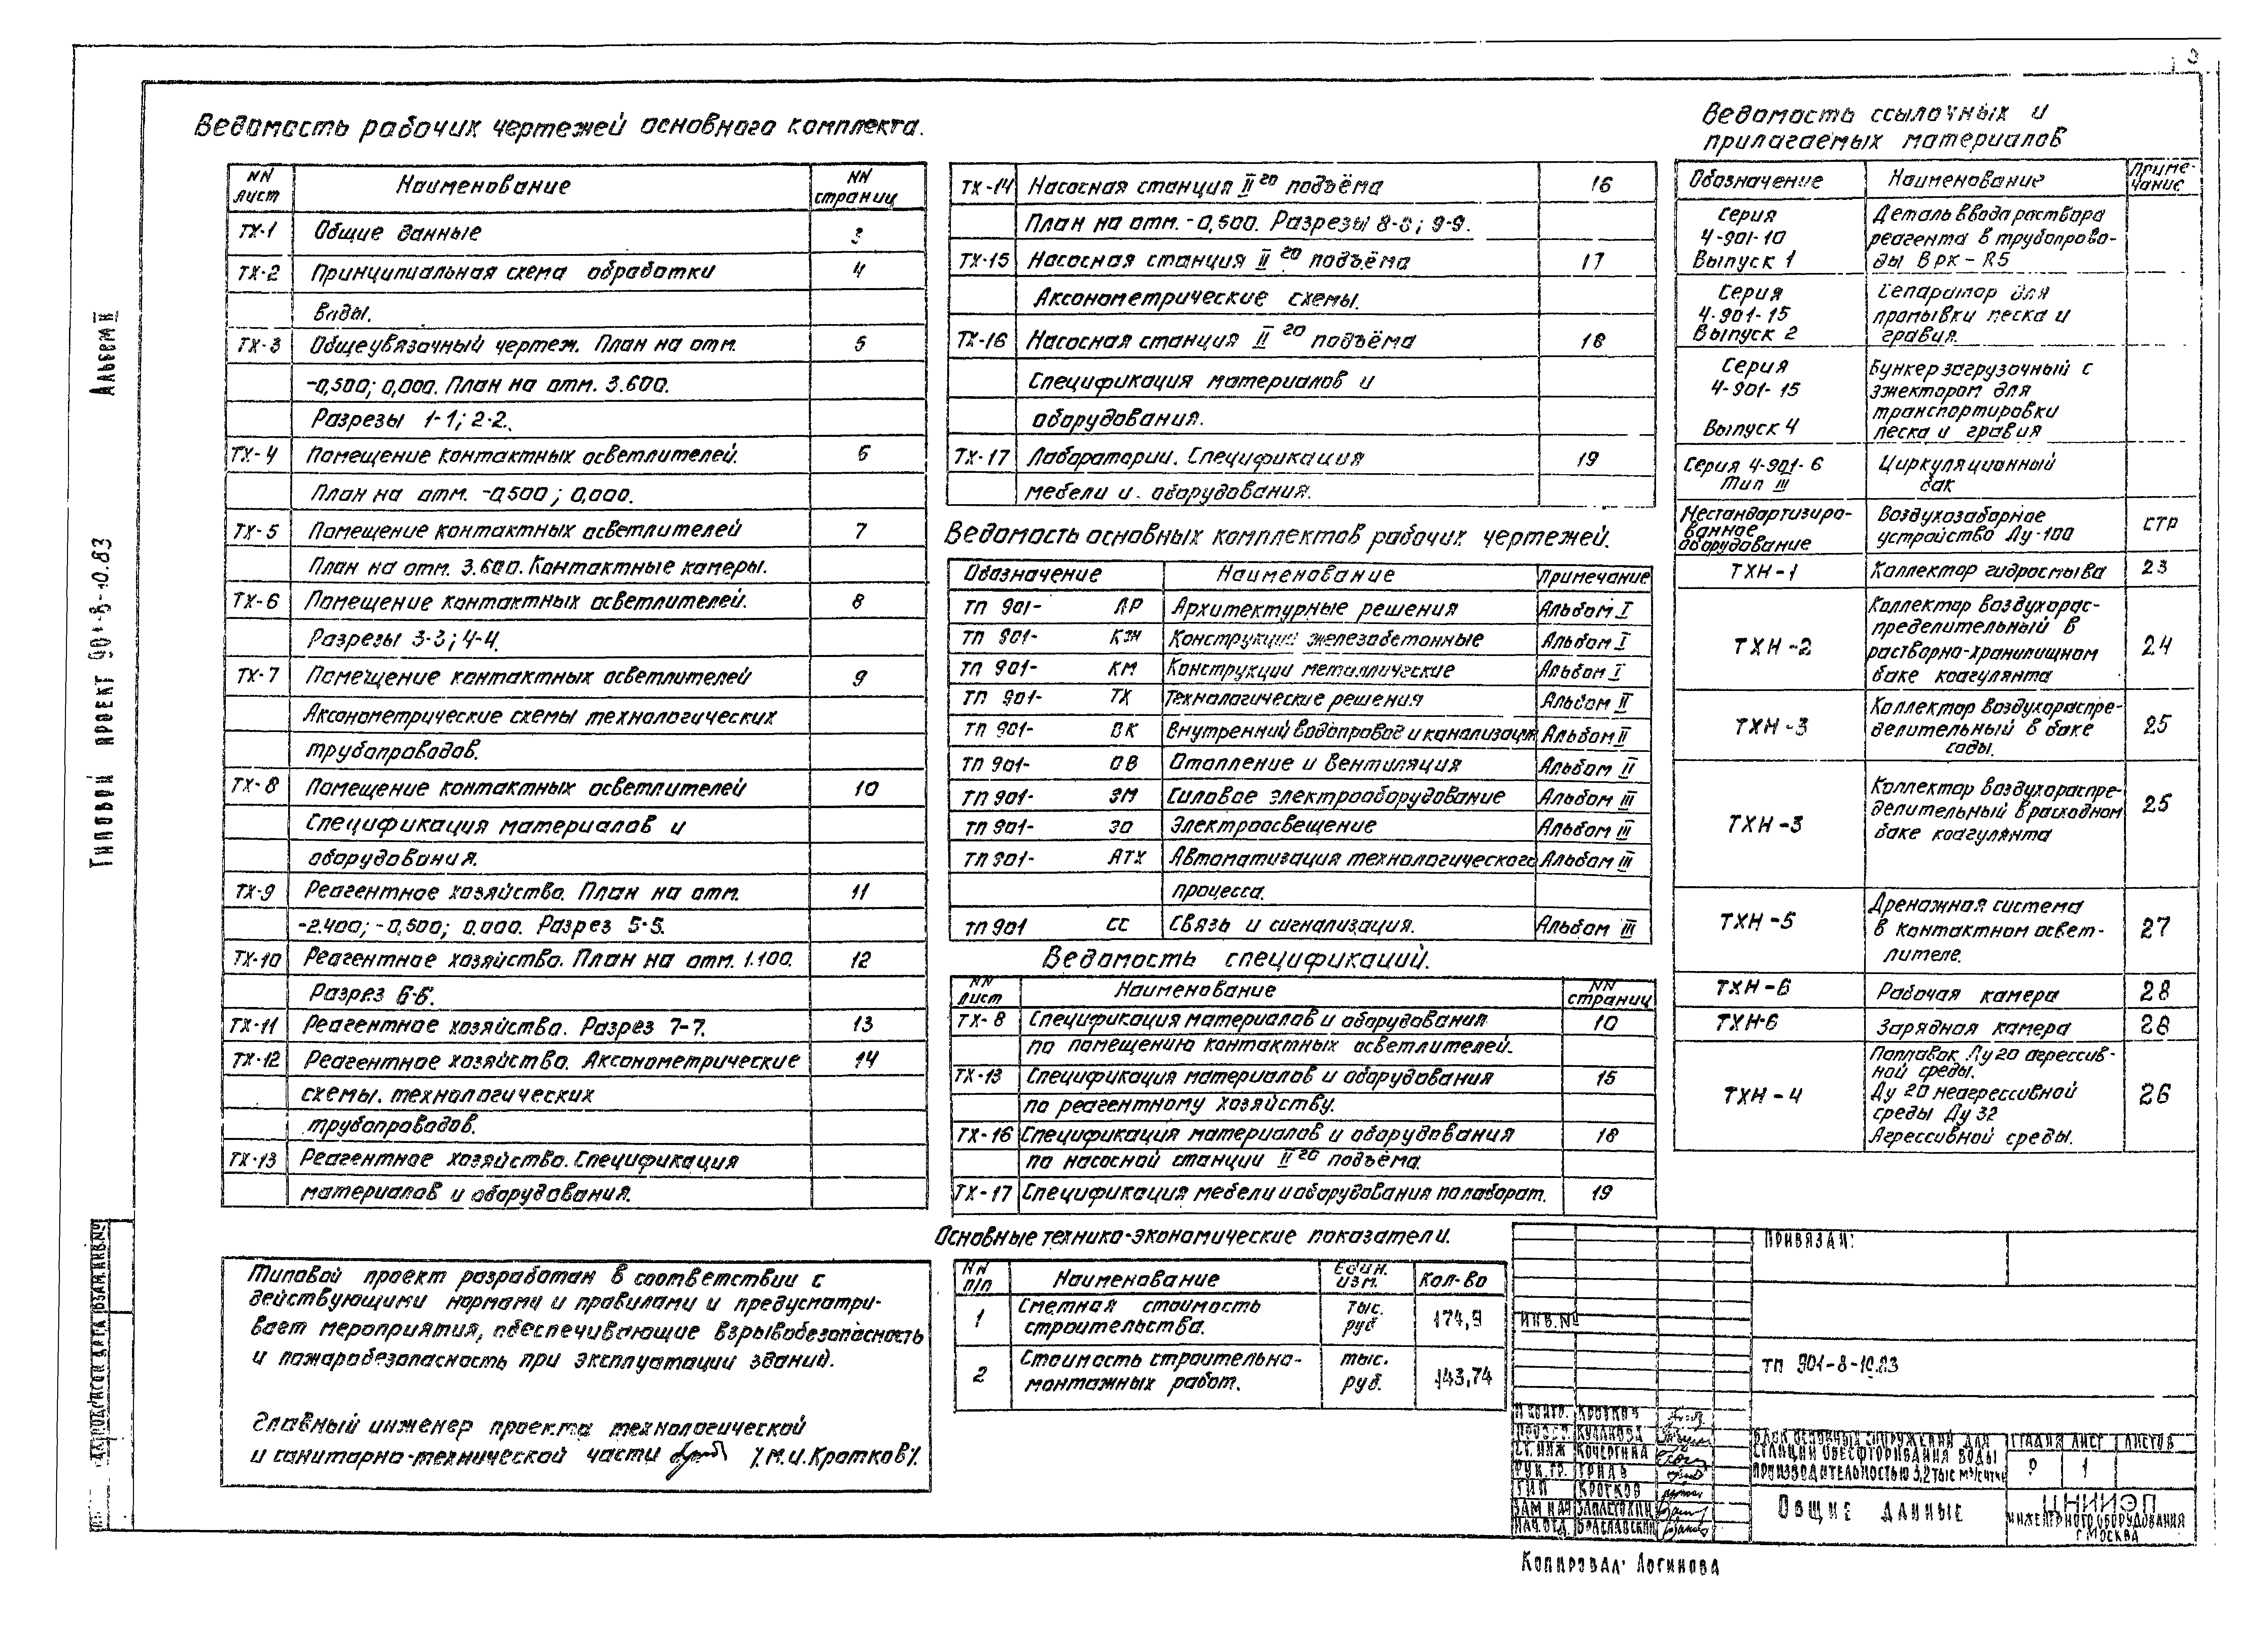 3
Ведомость рабочих чертежей основного комплекта.
NN лист Наименование NN страниц
ТХ-1 Общие данные 3
ТХ-2 Принципиальная схема обработки 4
воды.
ТХ-3 Общеувязочный чертеж. План на отм. 5
-0,500; 0,000. План на отм. 3.600.
Разрезы 1-1; 2-2.
ТХ-4 Помещение контактных осветлителей. 6
План на отм. -0,500; 0,000.
ТХ-5 Помещение контактных осветлителей 7
План на отм. 3.600. Контактные камеры.
ТХ-6 Помещение контактных осветлителей. 8
Разрезы 3-3; 4-4.
ТХ-7 Помещение контактных осветлителей 9
Аксонометрические схемы технологических
трубопроводов.
ТХ-8 Помещение контактных осветлителей 10
Спецификация материалов и
оборудования.
ТХ-9 Реагентное хозяйство. План на отм. 11
-2.400; -0,500; 0.000. Разрез 5-5.
ТХ-10 Реагентное хозяйство. План на отм. 1.100. 12
Разрез 6-6.
ТХ-11 Реагентное хозяйство. Разрез 7-7. 13
ТХ-12 Реагентное хозяйство. Аксонометрические 14
схемы. технологических
трубопроводов.
ТХ-13 Реагентное хозяйство. Спецификация
материалов и оборудования.
ТХ-14 Насосная станция II го подъёма 16
План на отм. -0,500. Разрезы 8-8; 9-9.
ТХ-15 Насосная станция II го подъёма 17
Аксонометрические схемы.
ТХ-16 Насосная станция II го подъёма 18
Спецификация материалов и
оборудования.
ТХ-17 Лаборатории. Спецификация 19
мебели и оборудования.
Ведомость основных комплектов рабочих чертежей.
Обозначение Наименование Примечание
ТП 901- АР Архитектурные решения Альбом I
ТП 901- КЖ Конструкции железобетонные Альбом I
ТП 901- КМ Конструкции металлические Альбом I
ТП 901- ТХ Технологические решения Альбом II
ТП 901- ВК Внутренний водопровод и канализация Альбом II
ТП 901- ОВ Отопление и вентиляция Альбом II
ТП 901- ЭМ Силовое электрооборудование Альбом III
ТП 901- ЭО Электроосвещение Альбом III
ТП 901- АТХ Автоматизация технологического Альбом III
процесса.
ТП 901 СС Связь и сигнализация. Альбом III
Ведомость спецификаций.
NN лист Наименование NN страниц
ТХ-8 Спецификация материалов и оборудования 10
по помещению контактных осветлителей.
ТХ-13 Спецификация материалов и оборудования 15
по реагентному хозяйству.
ТХ-16 Спецификация материалов и оборудования 18
по насосной станции II го подъёма.
ТХ-17 Спецификация мебели и оборудования по лаборат. 19
Основные технико-экономические показатели.
NN п/п Наименование Един. изм. Кол-во
1 Сметная стоимость строительства. тыс. руб 174,9
2 Стоимость строительно-монтажных работ. тыс. руб. 143,74
Ведомость ссылочных и
прилагаемых материалов
Обозначение Наименование Приме-чание
Серия 4-901-10 Выпуск 1 Деталь ввода раствора реагента в трубопрово-ды ВРК-R5
Серия 4-901-15 Выпуск 2 Сепаратор для промывки песка и гравия.
Серия 4-901-15 Выпуск 4 Бункер загрузочный с эжектором для транспортировки песка и гравия
Серия 4-901-6 Тип III Циркуляционный бак
Нестандартизиро-ванное оборудование Воздухозаборное устройство Ду-100 СТР
ТХН-1 Коллектор гидросмыва 23
ТХН-2 Коллектор воздухорас-пределительный в растворно-хранилищном баке коагулянта 24
ТХН-3 Коллектор воздухораспре-делительный в баке соды. 25
ТХН-3 Коллектор воздухораспре-делительный в расходном баке коагулянта 25
ТХН-5 Дренажная система в контактном освет-лителе. 27
ТХН-6 Рабочая камера 28
ТХН-6 Зарядная камера 28
ТХН-4 Поплавок Ду 20 агрессив-ной среды. Ду 20 неагрессивной среды Ду 32 Агрессивной среды. 26
Типовой проект разработан в соответствии с
действующими нормами и правилами и предусматри-
вает мероприятия, обеспечивающие взрывобезопасность
и пожаробезопасность при эксплуатации зданий.
Главный инженер проекта технологической
и санитарно-технической части /М.И. Кротков/.
Альбом II
Типовой проект 901-8-10.83
ВЗАМ.ИНВ.№
Привязан:
ИНВ.№
ТП 901-8-10.83
Н.контр. Кротков
Кулакова
Ст. инж Кочергина
Рук. гр.
ГИП Кротков
Зам нач
Нач. отд. Браславский
Блок основных сооружений для
станции обесфторивания воды
производительностью 3,2 тыс м³/сутки
Стадия Лист Листов
Р 1
Общие данные
ЦНИИЭП
инженерного оборудования
г. Москва
Копировал: Логинова